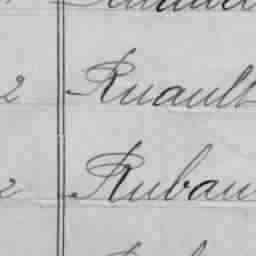 2 Ruault
2 Rubau